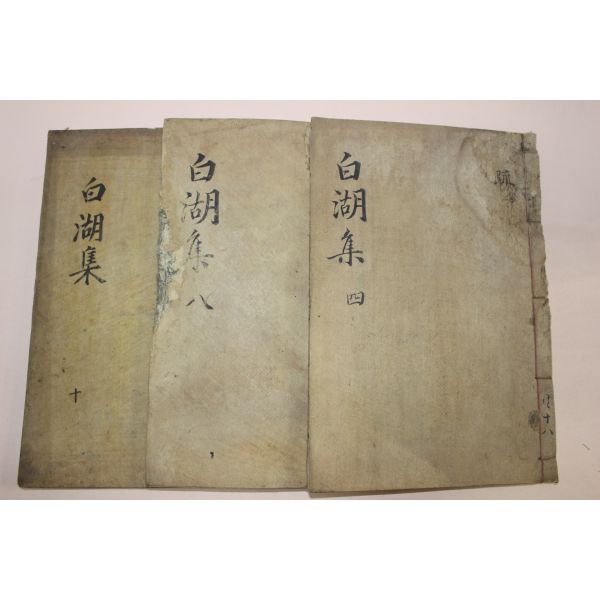 白湖集
四
疏
白湖集
八
白湖集
十